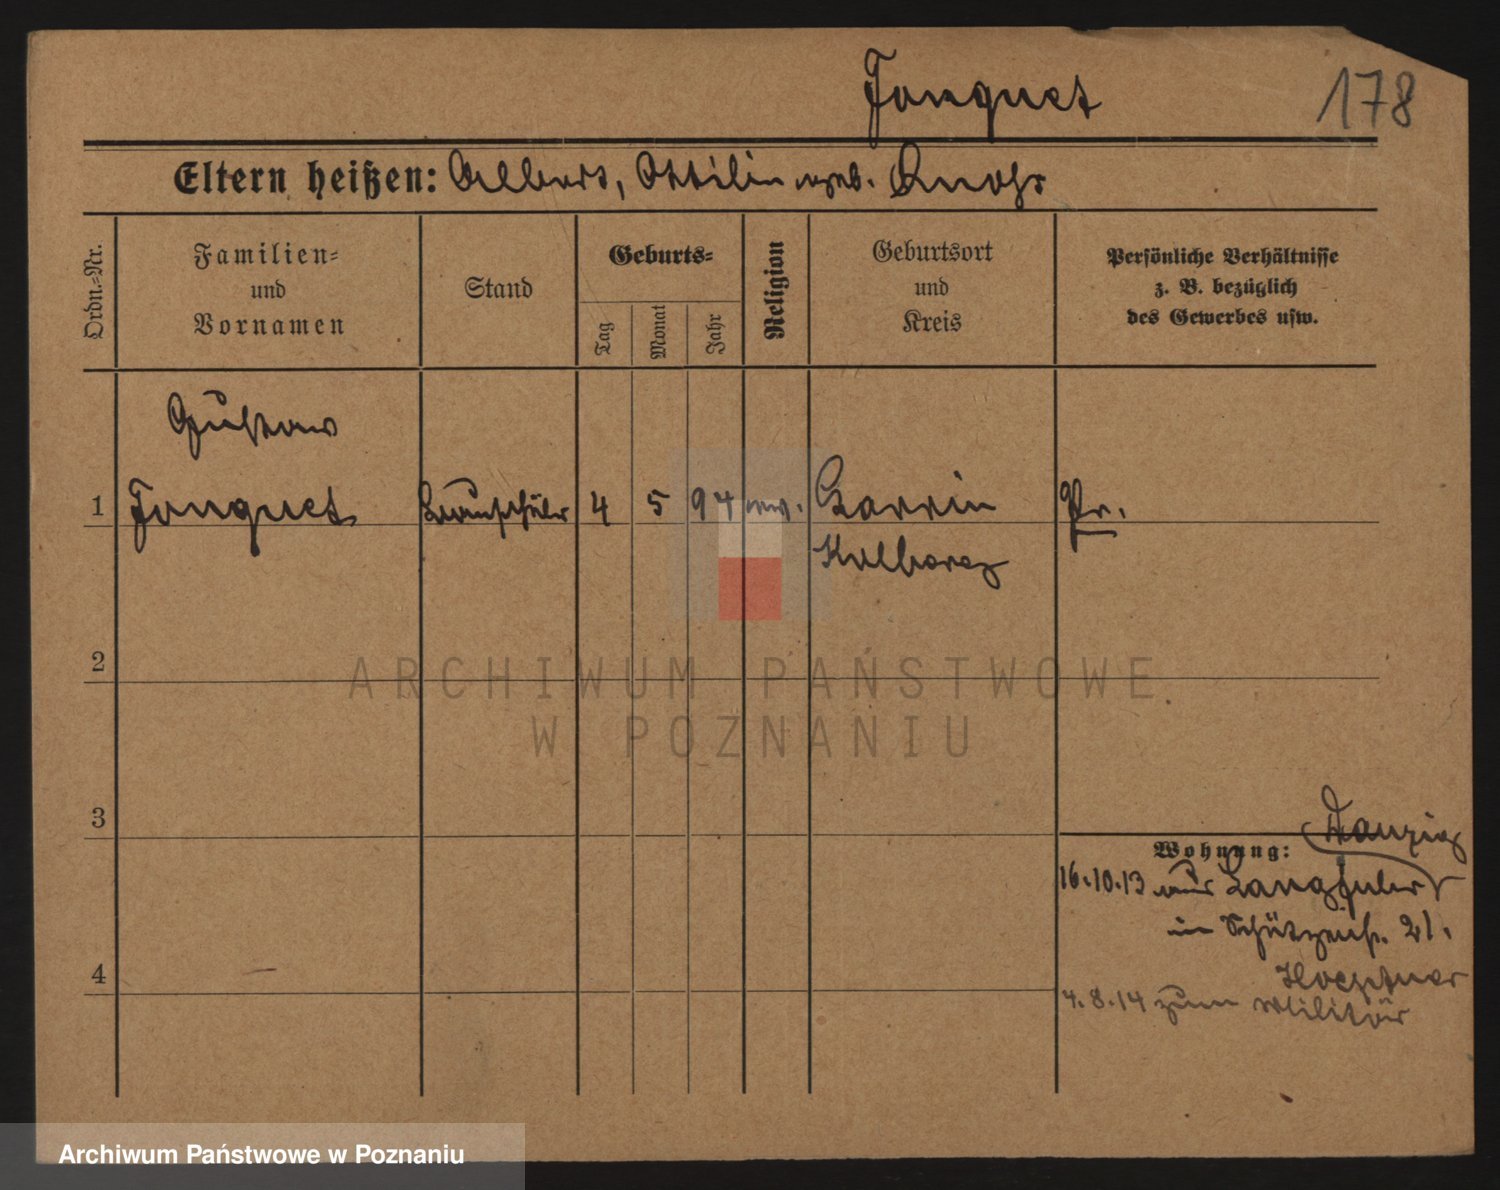 Fouquet
178
Eltern heißen: Albert, Ottilie geb. Knohr
Ordn.-Nr.
Familien-
und
Vornamen
Stand
Geburts-
Tag
Monat
Jahr
Religion
Geburtsort
und
Kreis
Persönliche Verhältnisse
z. B. bezüglich
des Gewerbes usw.
Gustav
1 Fouquet 4 5 94 ev. Garrin Pr.
Kolberg
2
3
4
Danzig
Wohnung:
16.10.13 aus Langfuhr
in Schützenstr. 21.
4.8.14 zum Militär
ARCHIWUM PAŃSTWOWE
W POZNANIU
Archiwum Państwowe w Poznaniu